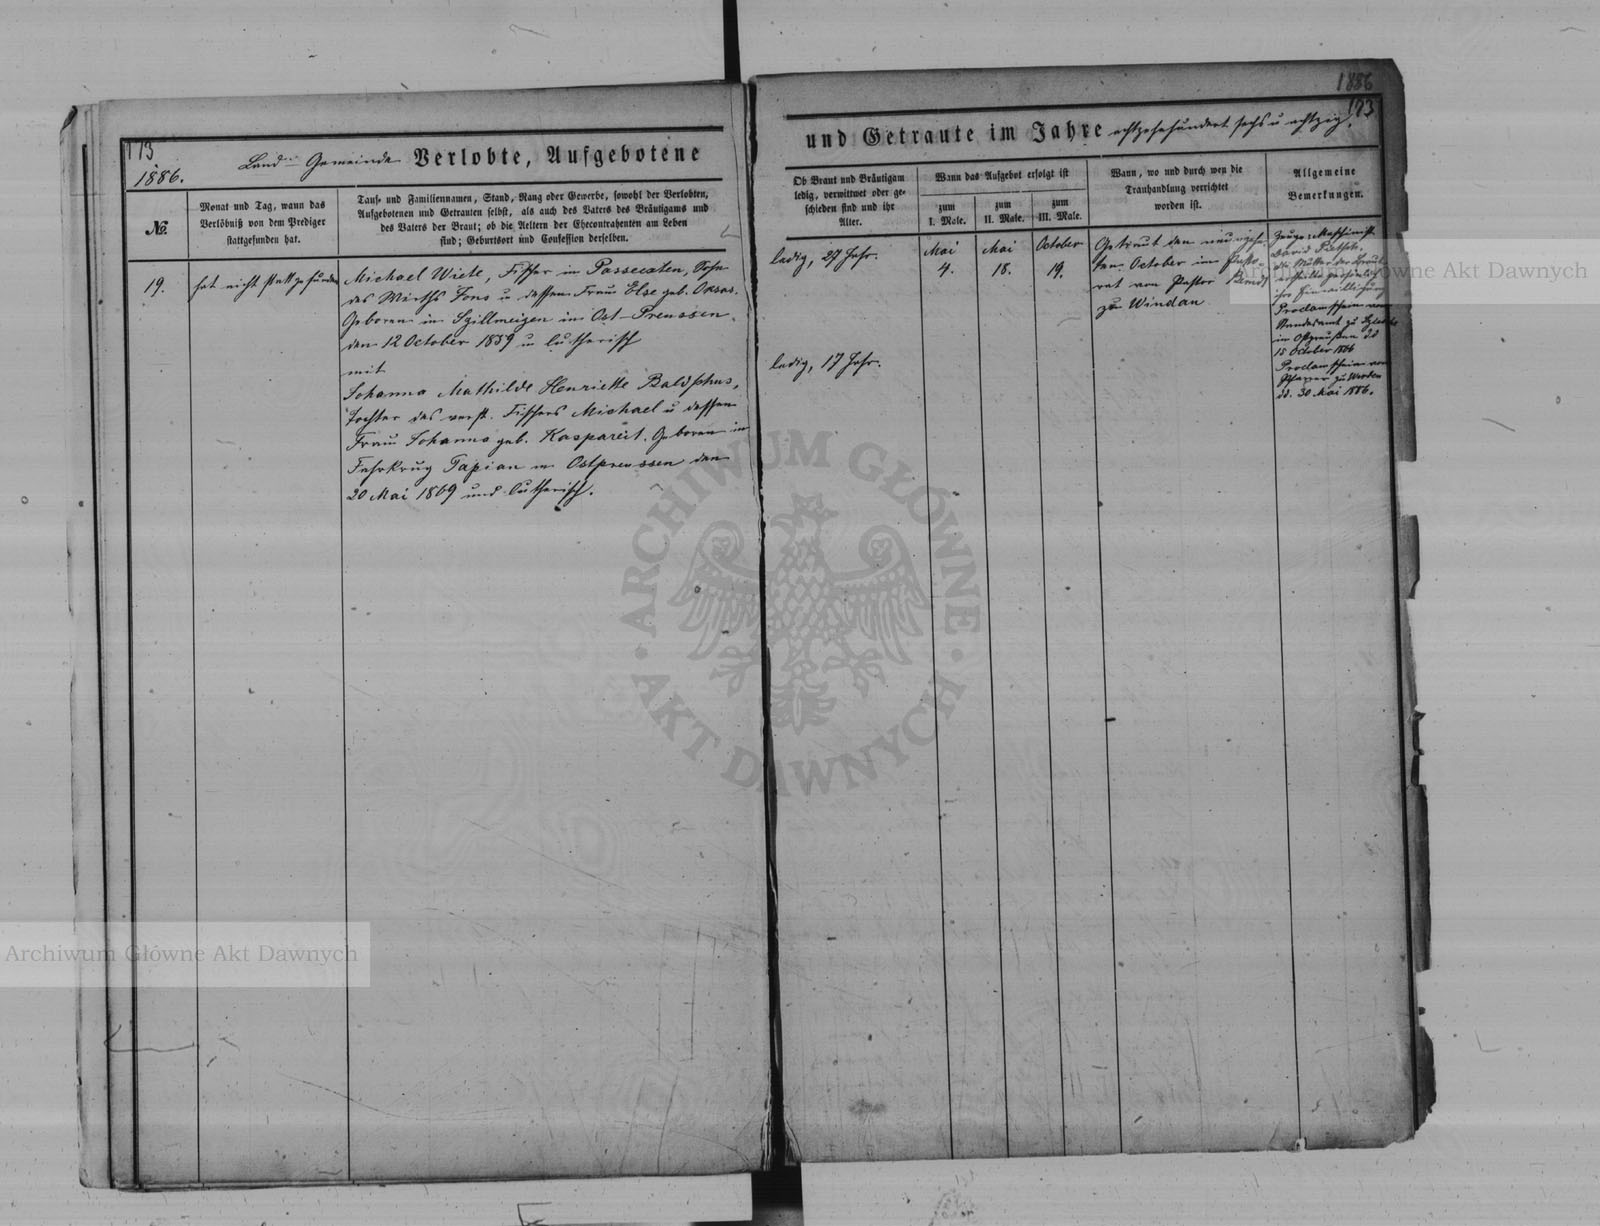 173
1886.
Land-Gemeinde Verlobte, Aufgebotene
№
Monat und Tag, wann das
Verlöbniß von dem Prediger
stattgefunden hat.
Tauf- und Familiennamen, Stand, Rang oder Gewerbe, sowohl der Verlobten,
Aufgebotenen und Getrauten selbst, als auch des Vaters des Bräutigams und
des Vaters der Braut; ob die Aeltern der Ehecontrahenten am Leben
sind; Geburtsort und Confession derselben.
19.
hat nicht stattgefunden
Michael Wiete, Fischer in Sohn
des Wirths Jons u dessen Frau Else geb.
Geboren in Szillmeizen in Ost-Preussen,
den 12 October 1859 u lutherisch
mit
Johanna Mathilde Henriette
Tochter des verst. Fischers Michael u dessen
Frau Johanna geb. Kaspareit. Geboren in
Fehrkrug Tapian in Ostpreussen den
20 Mai 1869 und lutherisch.
1886
173
und Getraute im Jahre achtzehnhundert sechs u achtzig.
Ob Braut und Bräutigam
ledig, verwittwet oder ge-
schieden sind und ihr
Alter.
Wann das Aufgebot erfolgt ist
zum
I. Male.
zum
II. Male.
zum
III. Male.
Wann, wo und durch wen die
Trauhandlung verrichtet
worden ist.
Allgemeine
Bemerkungen.
ledig, 27 Jahr.
Mai
4.
Mai
18.
October
19.
Getraut den neunzehn-
ten October im Pasto-
rat von Pastor
zu Windau
ledig, 17 Jahr.
Zeuge: Maschinist
David
die Mutter der Braut
ertheilte persönlich
ihre Einwilligung
Proclamschein vom
Standesamt zu
in Ostpreußen dd
15 October 1886
Proclamschein von
zu
dd. 30 Mai 1886.
ARCHIWUM GŁÓWNE · AKT DAWNYCH ·
Archiwum Główne Akt Dawnych
Archiwum Główne Akt Dawnych